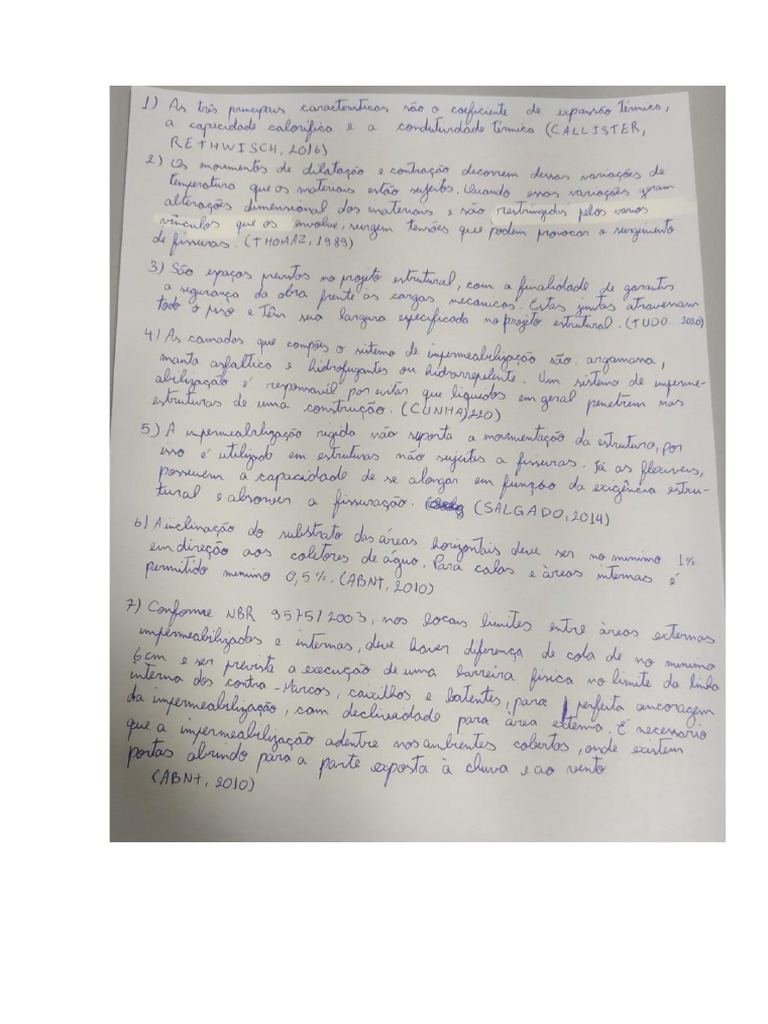 1) As três principais características são o coeficiente de expansão térmica,
a capacidade calorífica e a condutividade térmica (CALLISTER,
RETHWISCH, 2016)
2) Os movimentos de dilatação e contração decorrem dessas variações de
temperatura que os materiais estão sujeitos. Quando essas variações geram
alterações dimensional dos materiais e são restringidas pelos varios
vínculos que os envolve, surgem tensões que podem provocar o surgimento
de fissuras. (THOMAZ, 1989)
3) São espaços previstos no projeto estrutural, com a finalidade de garantir
a segurança da obra frente às cargas mecanicas. Estas juntas atravessam
todo o piso e têm sua largura especificada no projeto estrutural. (TUDO. 2020)
4) As camadas que compões o sistema de impermeabilização são: argamassa,
manta asfaltica e hidrofugantes ou hidrorrepelente. Um sistema de imperme-
abilização é responsavél por evitar que líquidos em geral penetrem nas
estruturas de uma construção. (CUNHA)
5) A impermeabilização rígida não suporta a movimentação da estrutura, por
isso é utilizado em estruturas não sujeitas a fissuras. Já as flexíveis,
possuem a capacidade de se alongar em função da exigência estru-
tural e absorver a fissuração. (SALGADO, 2014)
6) A inclinação do substrato das áreas horizontais deve ser no minimo 1%
em direção aos coletores de água. Para calas e àreas internas é
permitido minimo 0,5%. (ABNt, 2010)
7) Conforme NBR 9575/2003, nos locais limites entre àreas externas
impermeabilizadas e internas, deve haver diferença de cota de no minimo
6cm e ser prevista a execução de uma barreira física no limite da linha
interna dos contra-Marcos, caixilhos e batentes, para perfeita ancoragem
da impermeabilização, com declividade para área externa. É necessario
que a impermeabilização adentre nos ambientes cobertos, onde existem
portas abrindo para a parte exposta à chuva e ao vento
(ABNt, 2010)